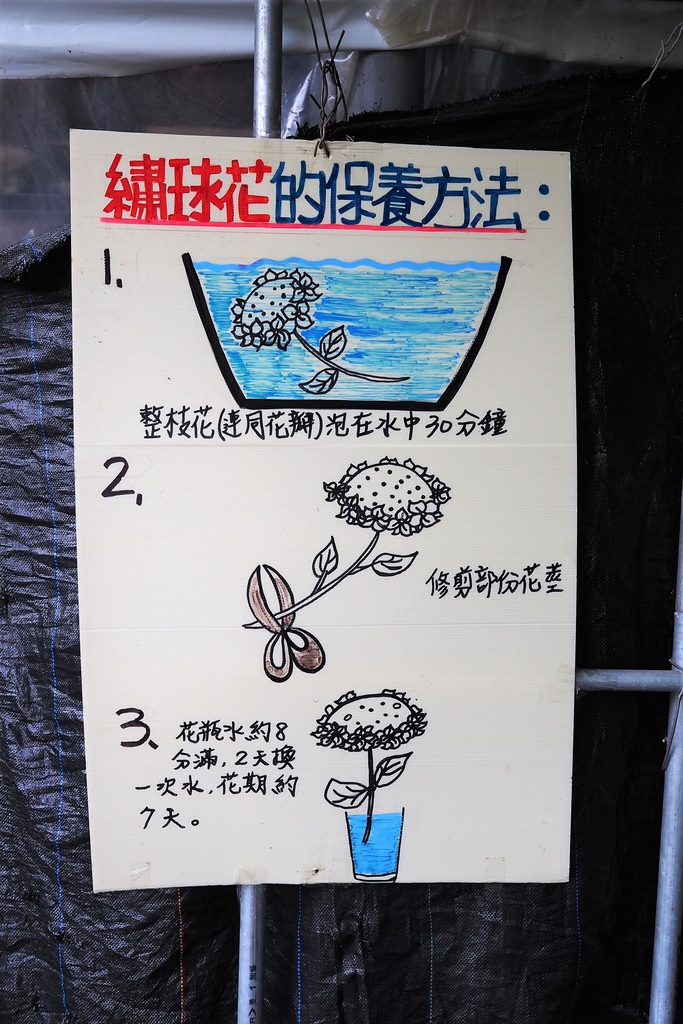 繡球花的保養方法：
1.
整枝花(連同花瓣)泡在水中30分鐘
2.
修剪部份花莖
3、花瓶水約8
分滿，2天換
一次水，花期約
7天。